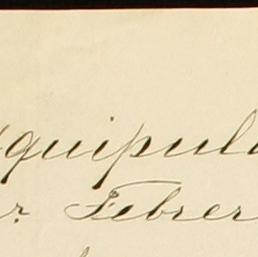 quipul
r. Febrer